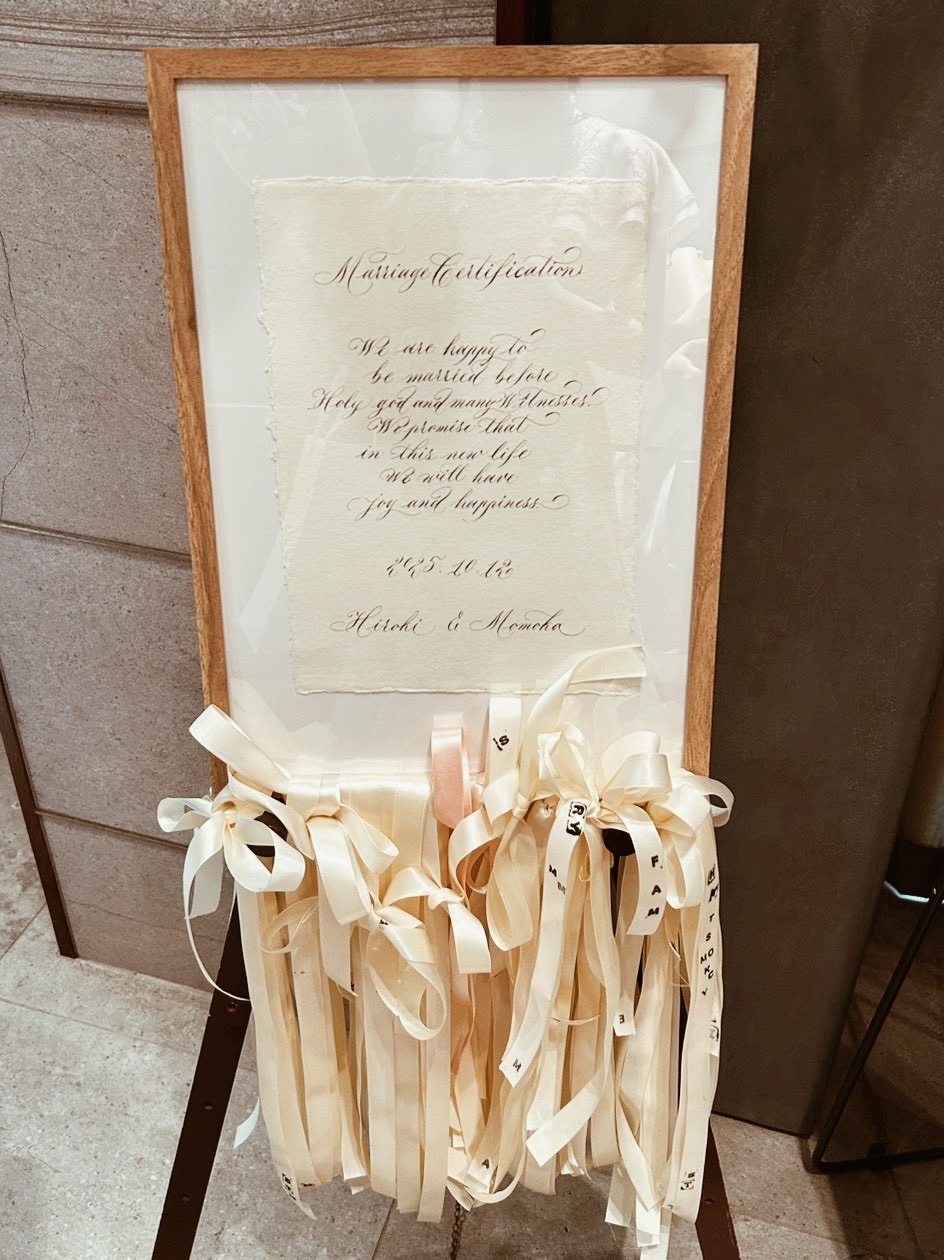 Marriage Certification
We are happy to
be married before
Holy god and many Witnesses.
We promise that
in this new life
we will have
joy and happiness.
2025.10.12
Hiroki & Momoka
S
RY
F.
A
M
M
M
E
M
A